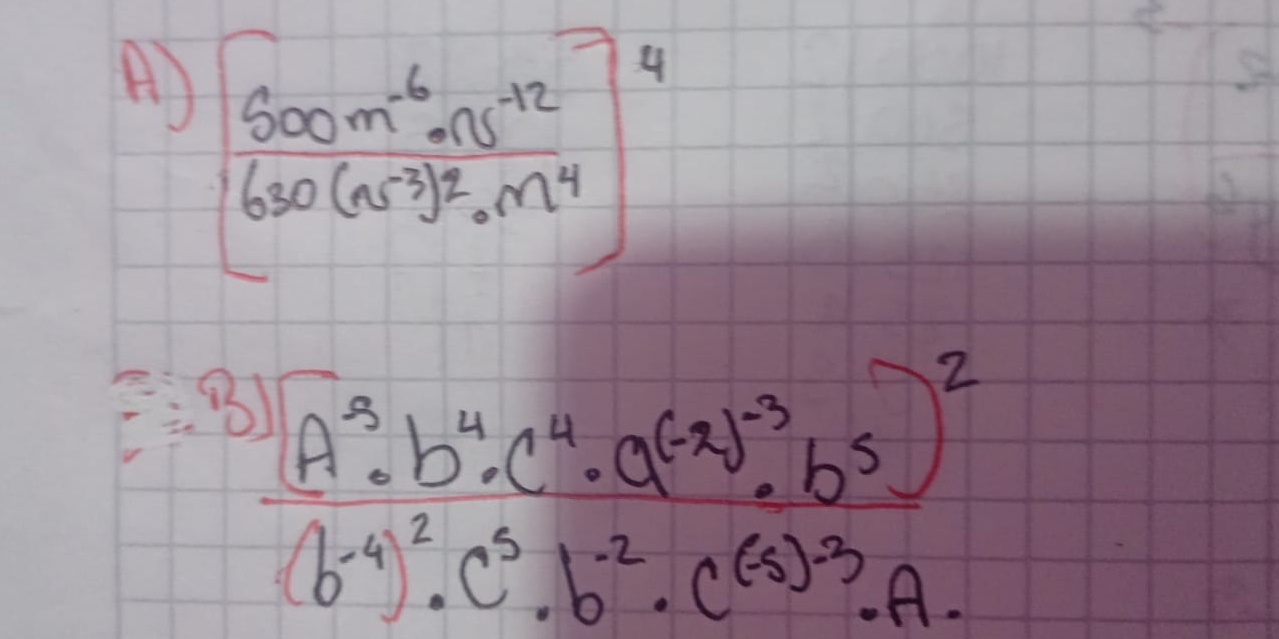 A) [500m⁻⁶ . ns⁻¹² ]⁴
630 (ns⁻³)² . m⁴
B) [A⁻⁵ . b⁴ . C⁴ . a⁽⁻²⁾⁻³ . b⁵ )²
(b⁻⁴)² . C⁵ . b⁻² . C⁽⁻⁵⁾⁻³ . A .